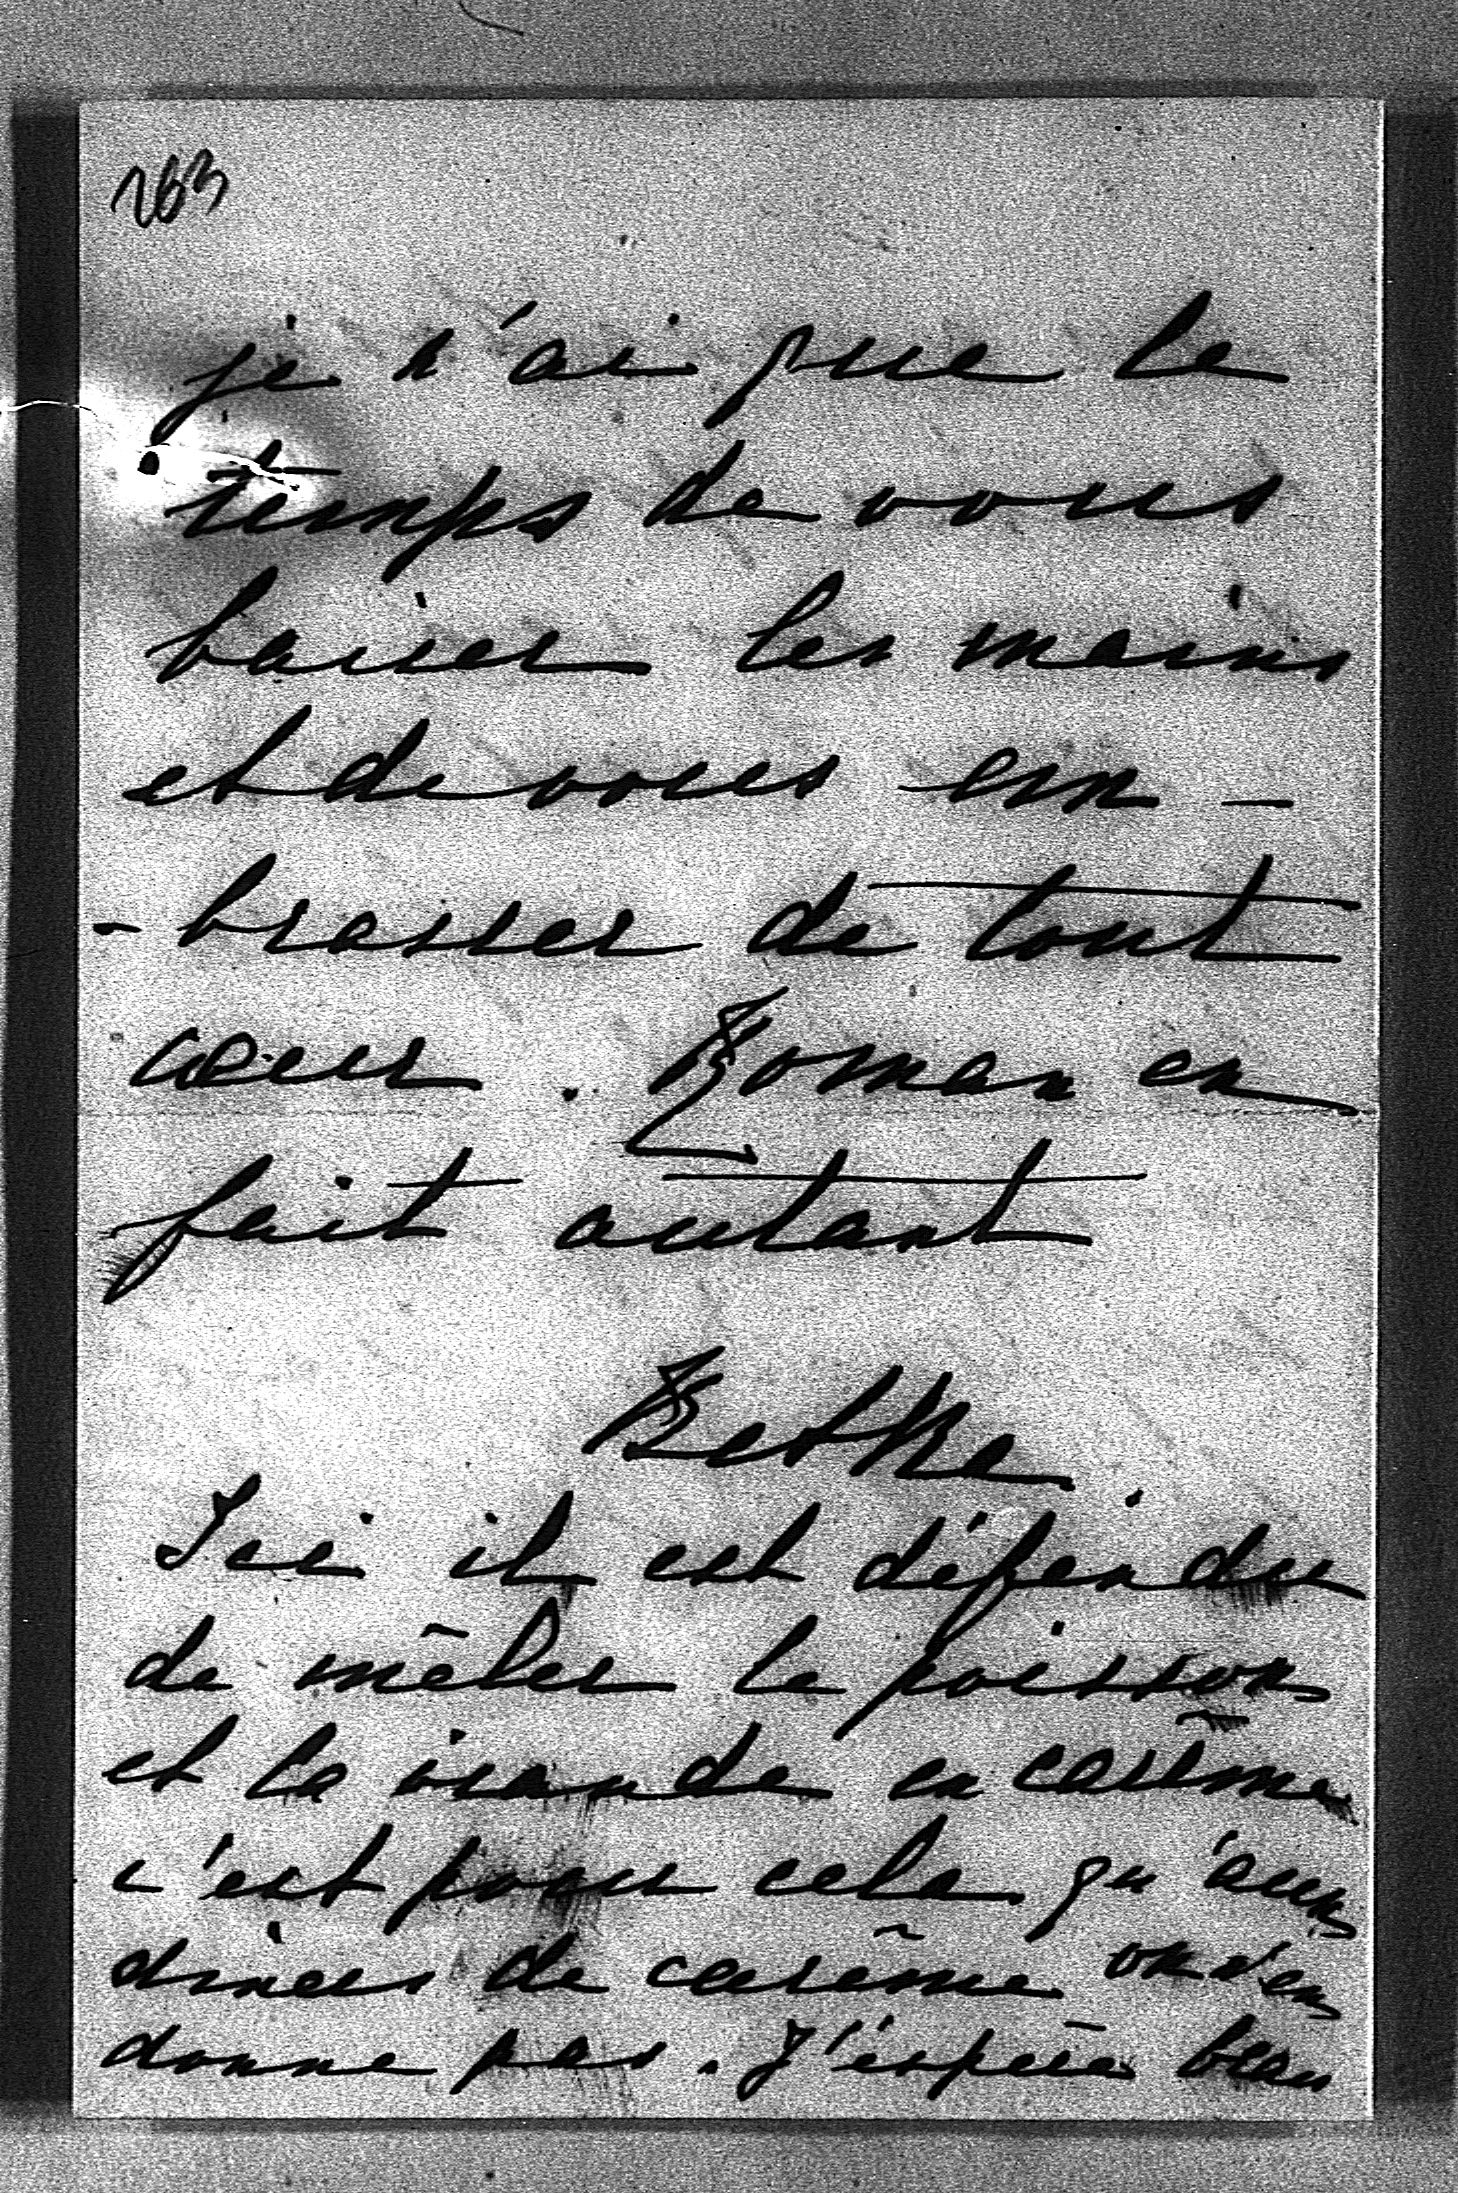 263
je n'ai que le
temps de vous
baiser les mains
et de vous em -
- brasser de tout
coeur. Roman en
fait autant
Betka.
Ici il est défendu
de mêler le poisson
et la viande en carême
c'est pour cela qu'aux
diners de carême on n'en
donne pas. J'espère